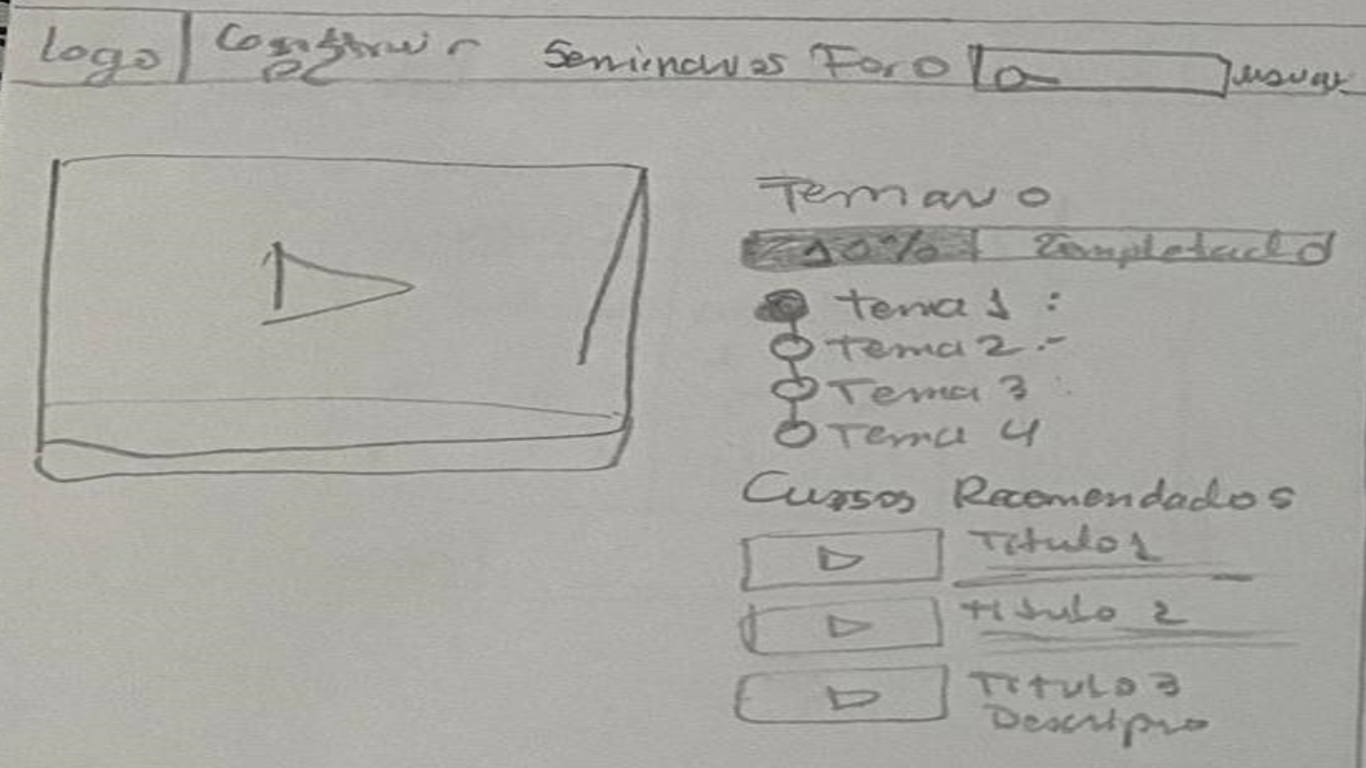 Logo Construir PC Seminarios Foro usuar
Temario
10% Completado
Tema 1 :
Tema 2 :-
Tema 3 :
Tema 4
Cursos Recomendados
Titulo 1
Titulo 2
Titulo 3
Descripcio